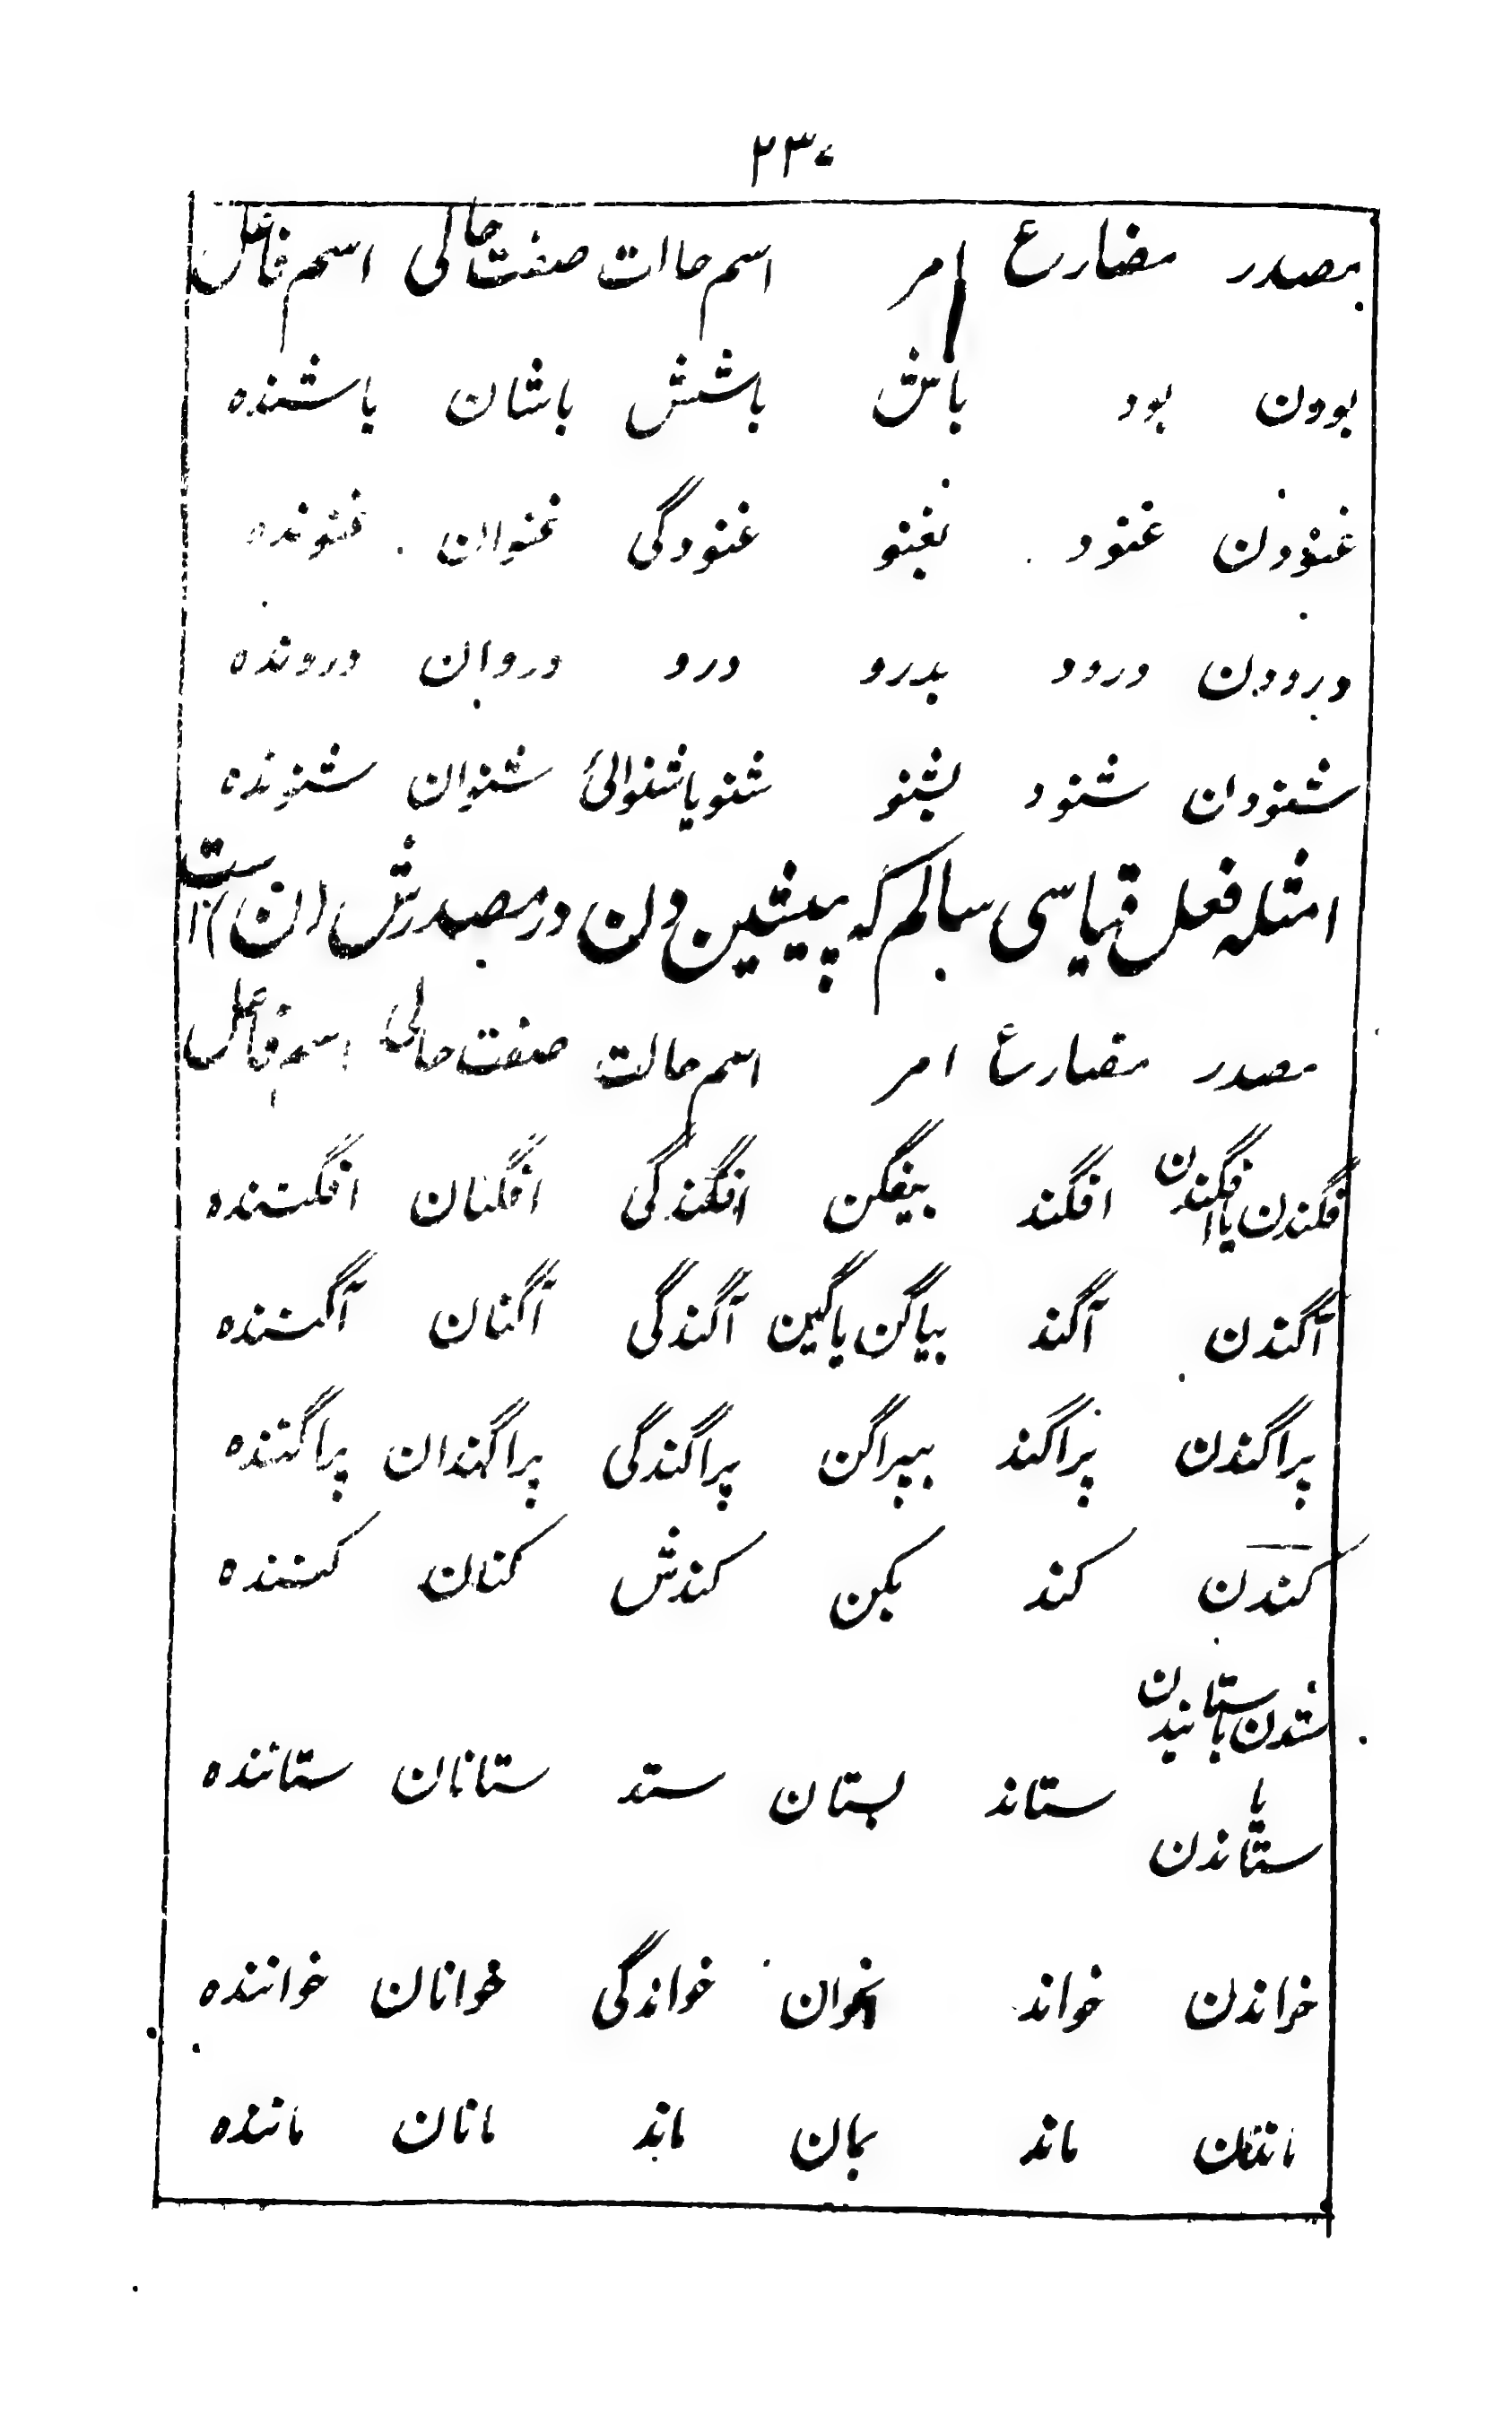 ۲۳۰
مصدر مضارع امر اسم حالت صفت حالی اسم فاعل
بودن بود باش باشش باشان باشنده
غنودن غنود بغنو غنودگی غنوان غنونده
درودن درود بدرو درو دروان درونده
شنودن شنود بشنو شنو یا شنوائی شنوان شنونده
امثله فعل قیاسی سالم که پیشین دن در مصدرش (ن) است
مصدر مضارع امر اسم حالت صفت حالی اسم فاعل
فگندن یا افگندن افگند بیفگن افگندگی افگنان افگننده
آگندن آگند بیاگن یا گین آگندگی آگنان آگننده
پراگندن پراگند بپراگن پراگندگی پراگندان پراگننده
کندن کند بکن کندش کنان کننده
ستدن یا ستانیدن
یا ستاند بستان ستد ستانان ستاننده
ستاندن
خواندن خواند بخوان خواندگی خوانان خواننده
ماندن ماند بمان ماند مانان ماننده